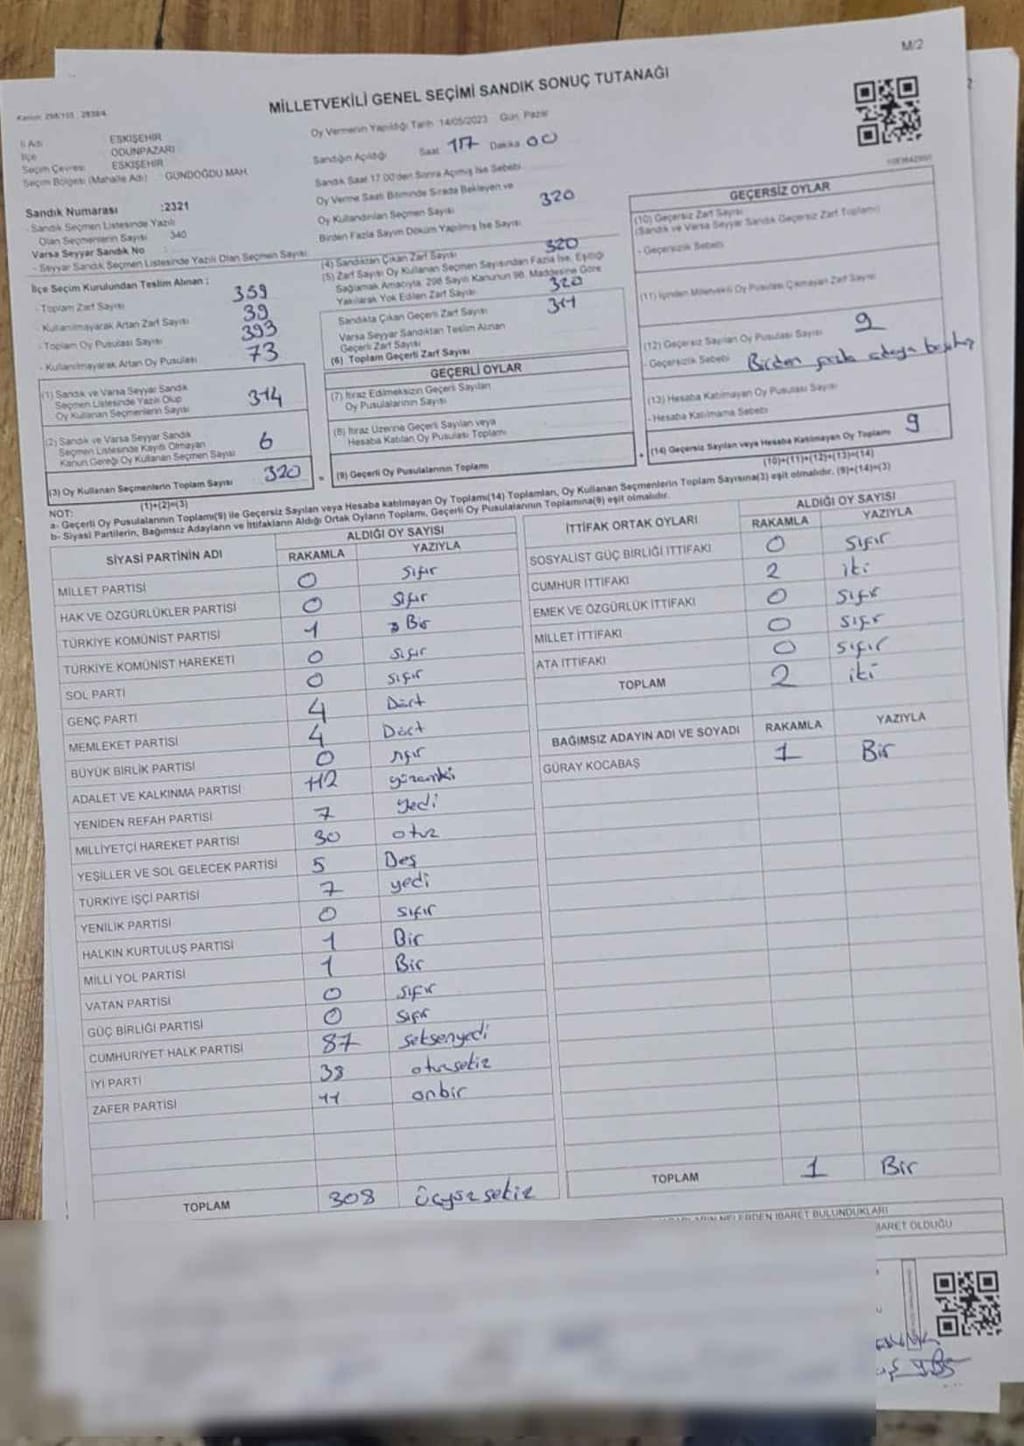 M/2
MİLLETVEKİLİ GENEL SEÇİMİ SANDIK SONUÇ TUTANAĞI
İl Adı : ESKİŞEHİR
İlçe : ODUNPAZARI
Seçim Çevresi : ESKİŞEHİR
Seçim Bölgesi (Mahalle Adı) : GÜNDOĞDU MAH.
Sandık Numarası :2321
Sandık Seçmen Listesinde Yazılı
Olan Seçmenlerin Sayısı : 340
Varsa Seyyar Sandık No
- Seyyar Sandık Seçmen Listesinde Yazılı Olan Seçmen Sayısı:
Oy Vermenin Yapıldığı Tarih 14/05/2023 Gün, Pazar
Sandığın Açıldığı Saat 17 Dakika 00
Sandık Saat 17.00'den Sonra Açılmış İse Sebebi
Oy Verme Saati Bitiminde Sırada Bekleyen ve
Oy Kullandırılan Seçmen Sayısı 320
Birden Fazla Sayım Döküm Yapılmış İse Sayısı
İlçe Seçim Kurulundan Teslim Alınan ;
- Toplam Zarf Sayısı 359
- Kullanılmayarak Artan Zarf Sayısı 39
- Toplam Oy Pusulası Sayısı 393
- Kullanılmayarak Artan Oy Pusulası 73
(1) Sandık ve Varsa Seyyar Sandık
Seçmen Listesinde Yazılı Olup
Oy Kullanan Seçmenlerin Sayısı 314
(2) Sandık ve Varsa Seyyar Sandık
Seçmen Listesinde Kayıtlı Olmayan
Kanun Gereği Oy Kullanan Seçmen Sayısı 6
(3) Oy Kullanan Seçmenlerin Toplam Sayısı 320
(1)+(2)=(3)
(4) Sandıktan Çıkan Zarf Sayısı 320
(5) Zarf Sayısı Oy Kullanan Seçmen Sayısından Fazla İse, Eşitliği
Sağlamak Amacıyla, 298 Sayılı Kanunun 98. Maddesine Göre
Yakılarak Yok Edilen Zarf Sayısı
Sandıkta Çıkan Geçerli Zarf Sayısı 320
Varsa Seyyar Sandıktan Teslim Alınan
Geçerli Zarf Sayısı
(6) Toplam Geçerli Zarf Sayısı
GEÇERLİ OYLAR
(7) İtiraz Edilmeksizin Geçerli Sayılan
Oy Pusulalarının Sayısı
(8) İtiraz Üzerine Geçerli Sayılan veya
Hesaba Katılan Oy Pusulası Toplamı
(9) Geçerli Oy Pusulalarının Toplamı
GEÇERSİZ OYLAR
(10) Geçersiz Zarf Sayısı
(Sandık ve Varsa Seyyar Sandık Geçersiz Zarf Toplamı)
- Geçersizlik Sebebi
(11) İçinden Milletvekili Oy Pusulası Çıkmayan Zarf Sayısı
(12) Geçersiz Sayılan Oy Pusulası Sayısı 9
- Geçersizlik Sebebi Birden fazla adaya
(13) Hesaba Katılmayan Oy Pusulası Sayısı
- Hesaba Katılmama Sebebi
(14) Geçersiz Sayılan veya Hesaba Katılmayan Oy Toplamı 9
(10)+(11)+(12)+(13)=(14)
NOT:
a- Geçerli Oy Pusulalarının Toplamı(9) ile Geçersiz Sayılan veya Hesaba katılmayan Oy Toplamı(14) Toplamları, Oy Kullanan Seçmenlerin Toplam Sayısına(3) eşit olmalıdır. (9)+(14)=(3)
b- Siyasi Partilerin, Bağımsız Adayların ve İttifakların Aldığı Ortak Oyların Toplamı, Geçerli Oy Pusulalarının Toplamına(9) eşit olmalıdır.
SİYASİ PARTİNİN ADI ALDIĞI OY SAYISI
RAKAMLA YAZIYLA
MİLLET PARTİSİ 0 Sıfır
HAK VE ÖZGÜRLÜKLER PARTİSİ 0 Sıfır
TÜRKİYE KOMÜNİST PARTİSİ 1 Bir
TÜRKİYE KOMÜNİST HAREKETİ 0 Sıfır
SOL PARTİ 0 Sıfır
GENÇ PARTİ 4 Dört
MEMLEKET PARTİSİ 4 Dört
BÜYÜK BİRLİK PARTİSİ 0 Sıfır
ADALET VE KALKINMA PARTİSİ 112 yüzoniki
YENİDEN REFAH PARTİSİ 7 yedi
MİLLİYETÇİ HAREKET PARTİSİ 30 otuz
YEŞİLLER VE SOL GELECEK PARTİSİ 5 Beş
TÜRKİYE İŞÇİ PARTİSİ 7 yedi
YENİLİK PARTİSİ 0 sıfır
HALKIN KURTULUŞ PARTİSİ 1 Bir
MİLLİ YOL PARTİSİ 1 Bir
VATAN PARTİSİ 0 sıfır
GÜÇ BİRLİĞİ PARTİSİ 0 sıfır
CUMHURİYET HALK PARTİSİ 87 seksenyedi
İYİ PARTİ 38 otuzsekiz
ZAFER PARTİSİ 11 onbir
TOPLAM 308 üçyüzsekiz
İTTİFAK ORTAK OYLARI ALDIĞI OY SAYISI
RAKAMLA YAZIYLA
SOSYALİST GÜÇ BİRLİĞİ İTTİFAKI 0 sıfır
CUMHUR İTTİFAKI 2 iki
EMEK VE ÖZGÜRLÜK İTTİFAKI 0 sıfır
MİLLET İTTİFAKI 0 sıfır
ATA İTTİFAKI 0 sıfır
TOPLAM 2 iki
BAĞIMSIZ ADAYIN ADI VE SOYADI RAKAMLA YAZIYLA
GÜRAY KOCABAŞ 1 Bir
TOPLAM 1 Bir
NELERDEN İBARET BULUNDUKLARI
İBARET OLDUĞU